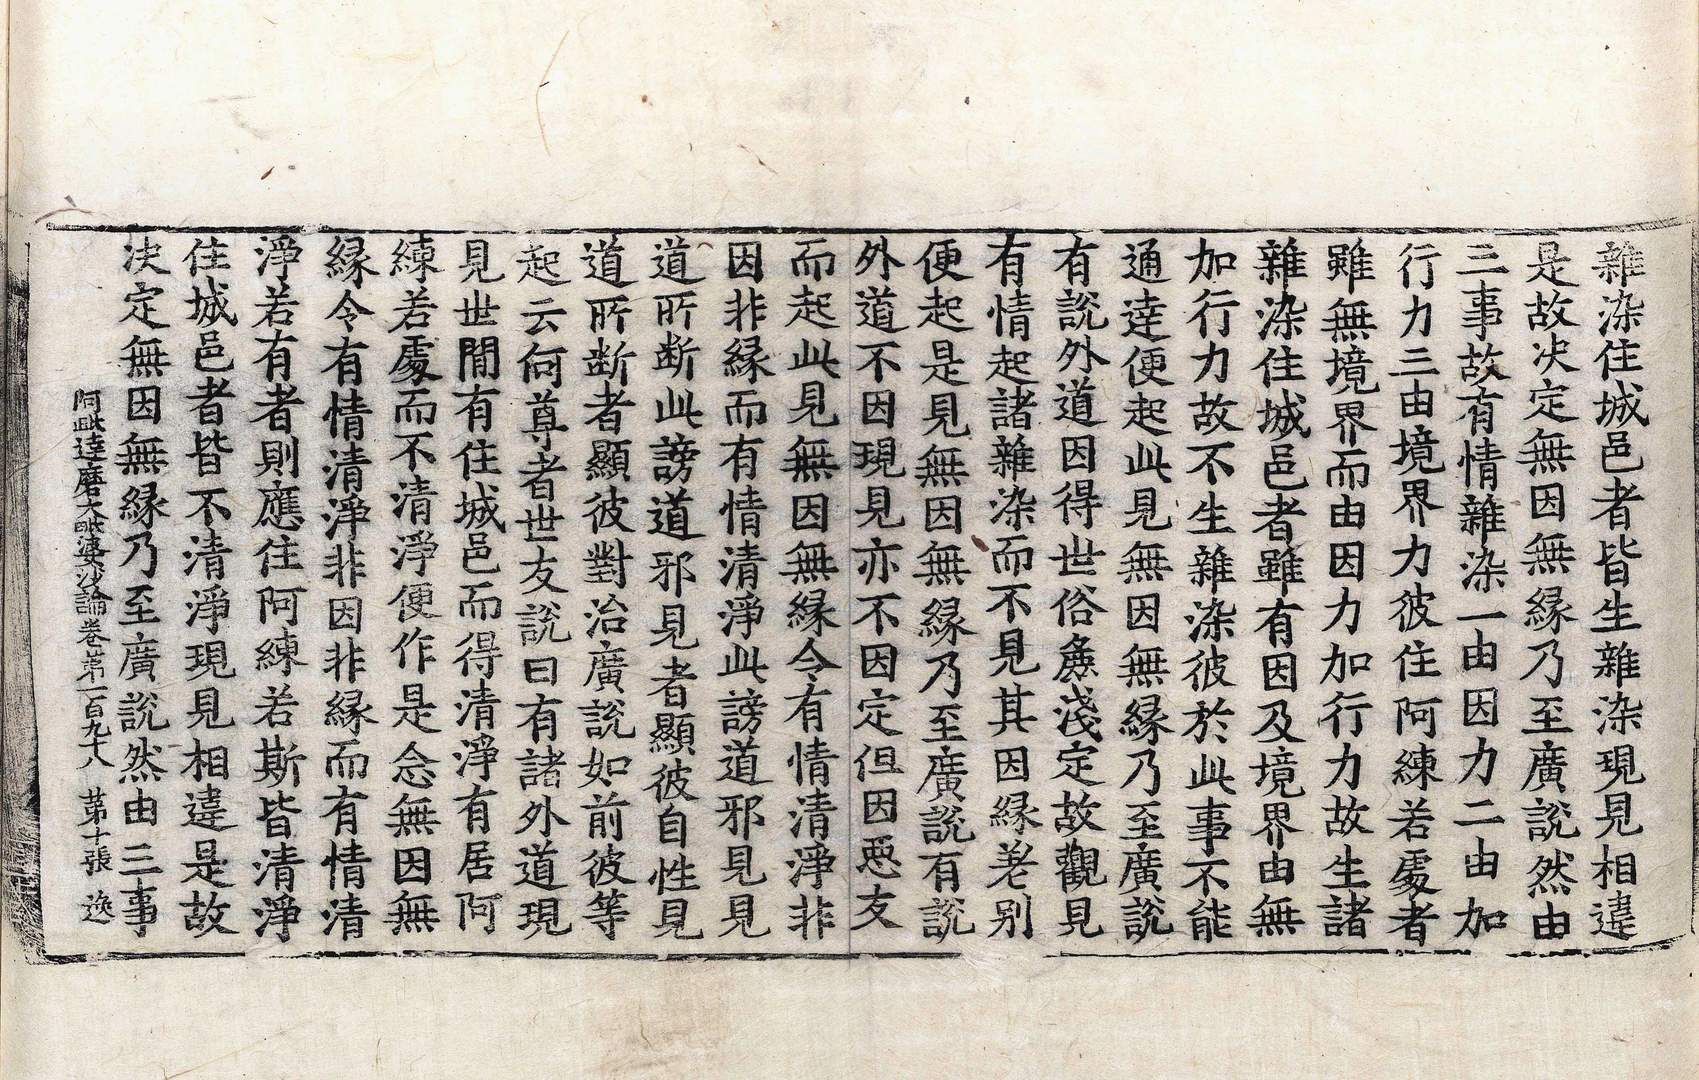 雜染住城邑者皆生雜染現見相違
是故决定無因無縁乃至廣說然由
三事故有情雜染一由因力二由加
行力三由境界力彼住阿練若處者
雖無境界而由因力加行力故生諸
雜染住城邑者雖有因及境界由無
加行力故不生雜染彼於此事不能
通達便起此見無因無縁乃至廣說
有說外道因得世俗麁淺定故觀見
有情起諸雜染而不見其因縁差别
便起是見無因無縁乃至廣說有說
外道不因現見亦不因定但因惡友
而起此見無因無縁令有情清淨非
因非縁而有情清淨此謗道邪見見
道所断此謗道邪見者顯彼自性見
道所断者顯彼對治廣說如前彼等
起云何尊者世友說曰有諸外道現
見世間有住城邑而得清淨有居阿
練若處而不清淨便作是念無因無
縁令有情清淨非因非縁而有情清
淨若有者則應住阿練若斯皆清淨
住城邑者皆不清淨現見相違是故
决定無因無縁乃至廣說然由三事
阿毗達磨大毗婆沙論卷第一百九十八 第十張 逸